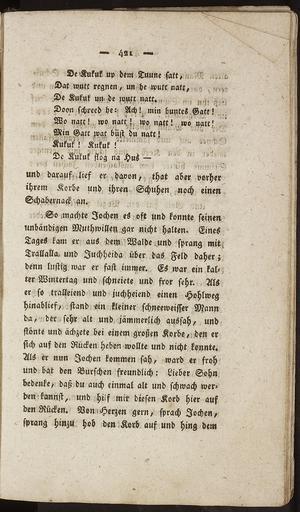 — 421 —
De Kukuk up dem Tuune satt,
Dat wurr regnen, un he wurr natt,
De Kukuk un de wurr natt.
Doon schreed he: Ach! min buntes Gatt!
Wo natt! wo natt! wo natt! wo natt!
Min Gatt wat büst du natt!
Kukuk! Kukuk!
De Kukuk flog na Hus —
und darauf lief er davon, that aber vorher
ihrem Korbe und ihren Schuhen noch einen
Schabernack an.
So machte Jochen es oft und konnte seinen
unbändigen Muthwillen gar nicht halten. Eines
Tages kam er aus dem Walde und sprang mit
Trallalla und Juchheida über das Feld daher;
denn lustig war er fast immer. Es war ein kal-
ter Wintertag und schneiete und fror sehr. Als
er so tralleiend und juchheiend einen Hohlweg
hinablief, stand ein kleiner schneeweisser Mann
da, der sehr alt und jämmerlich aussah, und
stönte und ächzete bei einem großen Korbe, den er
sich auf den Rücken heben wollte und nicht konnte.
Als er nun Jochen kommen sah, ward er froh
und bat den Burschen freundlich: Lieber Sohn
bedenke, daß du auch einmal alt und schwach wer-
den kannst, und hilf mir diesen Korb hier auf
den Rücken. Von Herzen gern, sprach Jochen,
sprang hinzu hob den Korb auf und hing dem